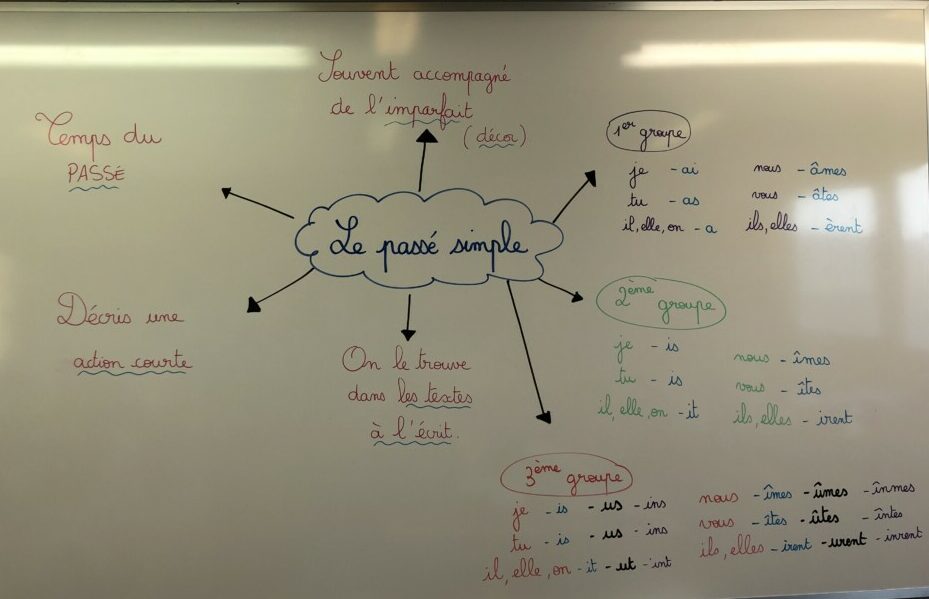 Souvent accompagné
de l'imparfait
(décor)
Temps du
PASSÉ
Le passé simple
Décris une
action courte
On le trouve
dans les textes
à l'écrit.
1er groupe
je - ai nous - âmes
tu - as vous - âtes
il, elle, on - a ils, elles - èrent
2ème groupe
je - is nous - îmes
tu - is vous - îtes
il, elle, on - it ils, elles - irent
3ème groupe
je - is - us - ins nous - îmes - ûmes - înmes
tu - is - us - ins vous - îtes - ûtes - întes
il, elle, on - it - ut - int ils, elles - irent - urent - inrent